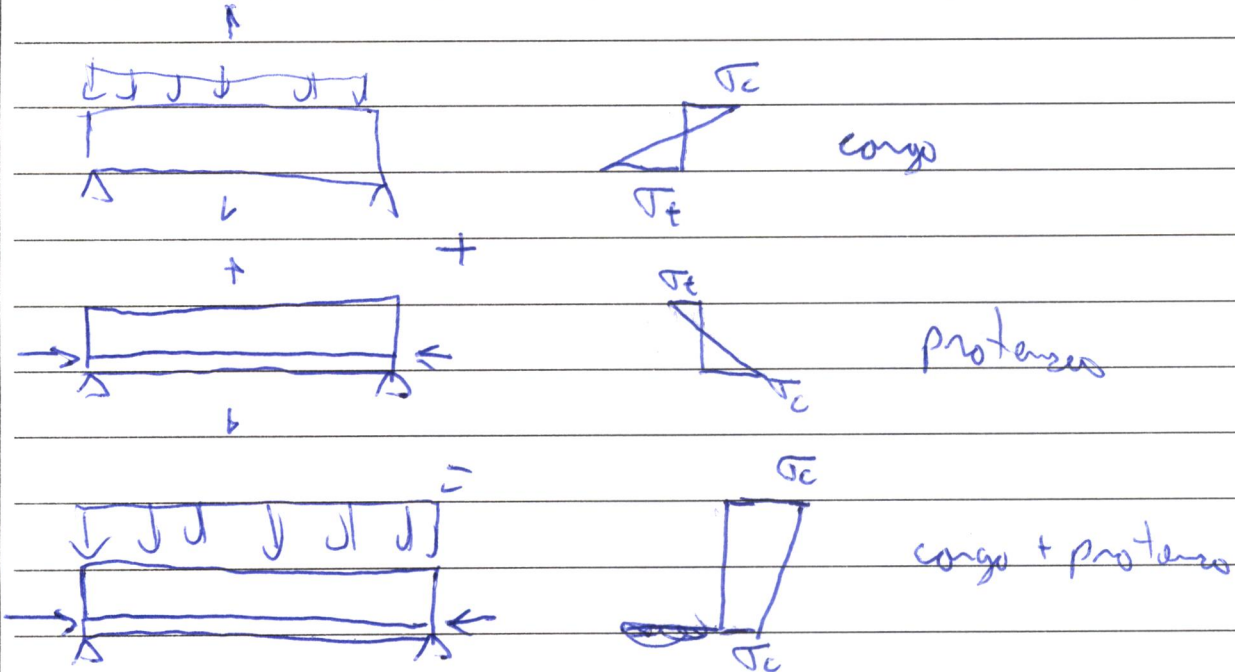 σc
carga
σt
+
σt
protensão
σc
=
σc
carga + protensão
σc